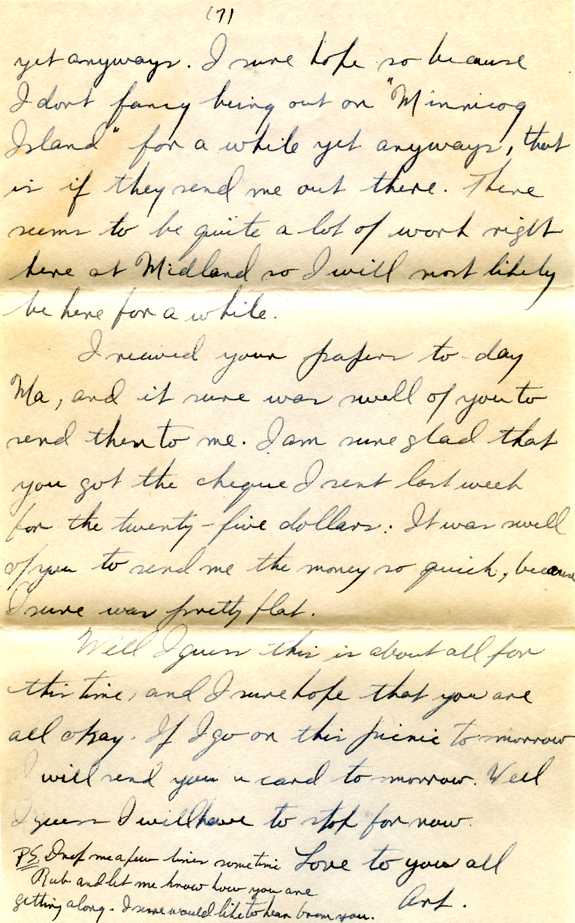 (7)
yet anyways. I sure hope so because
I dont fancy being out on "Minnicog
Island" for a while yet anyways, that
is if they send me out there. There
seems to be quite a lot of work right
here at Midland so I will most likely
be here for a while.
I recived your papers to-day
Ma, and it sure was swell of you to
send them to me. I am sure glad that
you got the cheque I sent last week
for the twenty-five dollars. It was swell
of you to send me the money so quick, because
I sure was pretty flat.
Well I guess this is about all for
this time, and I sure hope that you are
all okay. If I go on this picnic to-morrow
I will send you a card to morrow. Well
I guess I will have to stop for now.
Love to you all
Art.
P.S. Drop me a few lines sometime
Rub and let me know how you are
getting along. I sure would like to hear from you.